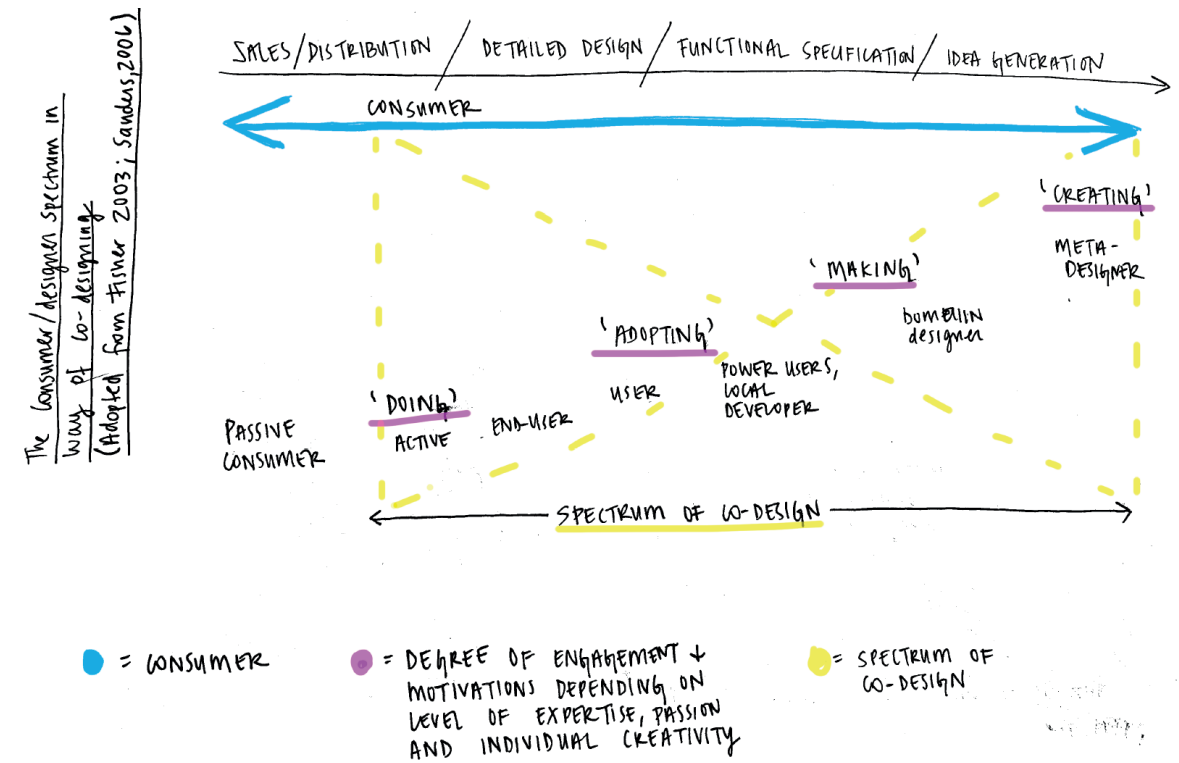 The consumer/designer spectrum in
way of co-designing
(Adopted from Fisher 2003; Sanders, 2006)
SALES/DISTRIBUTION / DETAILED DESIGN / FUNCTIONAL SPECIFICATION / IDEA GENERATION
CONSUMER
'CREATING'
META-
DESIGNER
'MAKING'
DOMAIN
designer
'ADOPTING'
USER
POWER USERS,
LOCAL
DEVELOPER
'DOING'
ACTIVE
END-USER
PASSIVE
CONSUMER
SPECTRUM OF CO-DESIGN
= CONSUMER
= DEGREE OF ENGAGEMENT +
MOTIVATIONS DEPENDING ON
LEVEL OF EXPERTISE, PASSION
AND INDIVIDUAL CREATIVITY
= SPECTRUM OF
CO-DESIGN